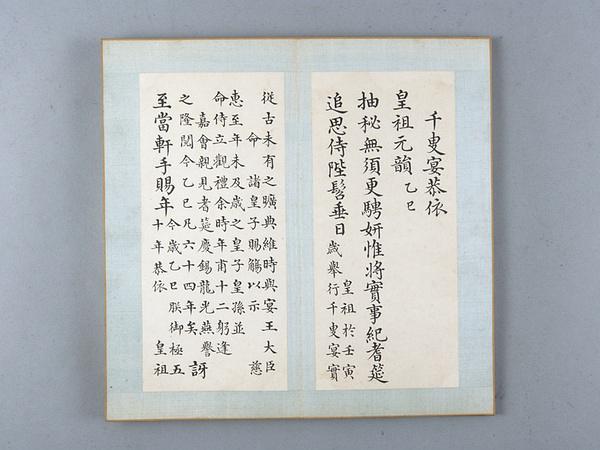 千叟宴恭依
皇祖元韻 乙巳
抽秘無須更騁妍惟將實事紀耆筵
追思侍陛髫垂日
皇祖於壬寅
歲舉行千叟宴實
從古未有之曠典維時與宴王大臣
命諸皇子賜觴以示 慈
惠至年未及歲之皇子皇孫並
命侍立觀禮余時年甫十二躬逢
嘉會親見耆筵慶錫龍光燕譽
之隆閱今乙巳凡六十四年矣
訝
至當軒手賜年
今歲乙巳朕御極五
十年恭依 皇祖